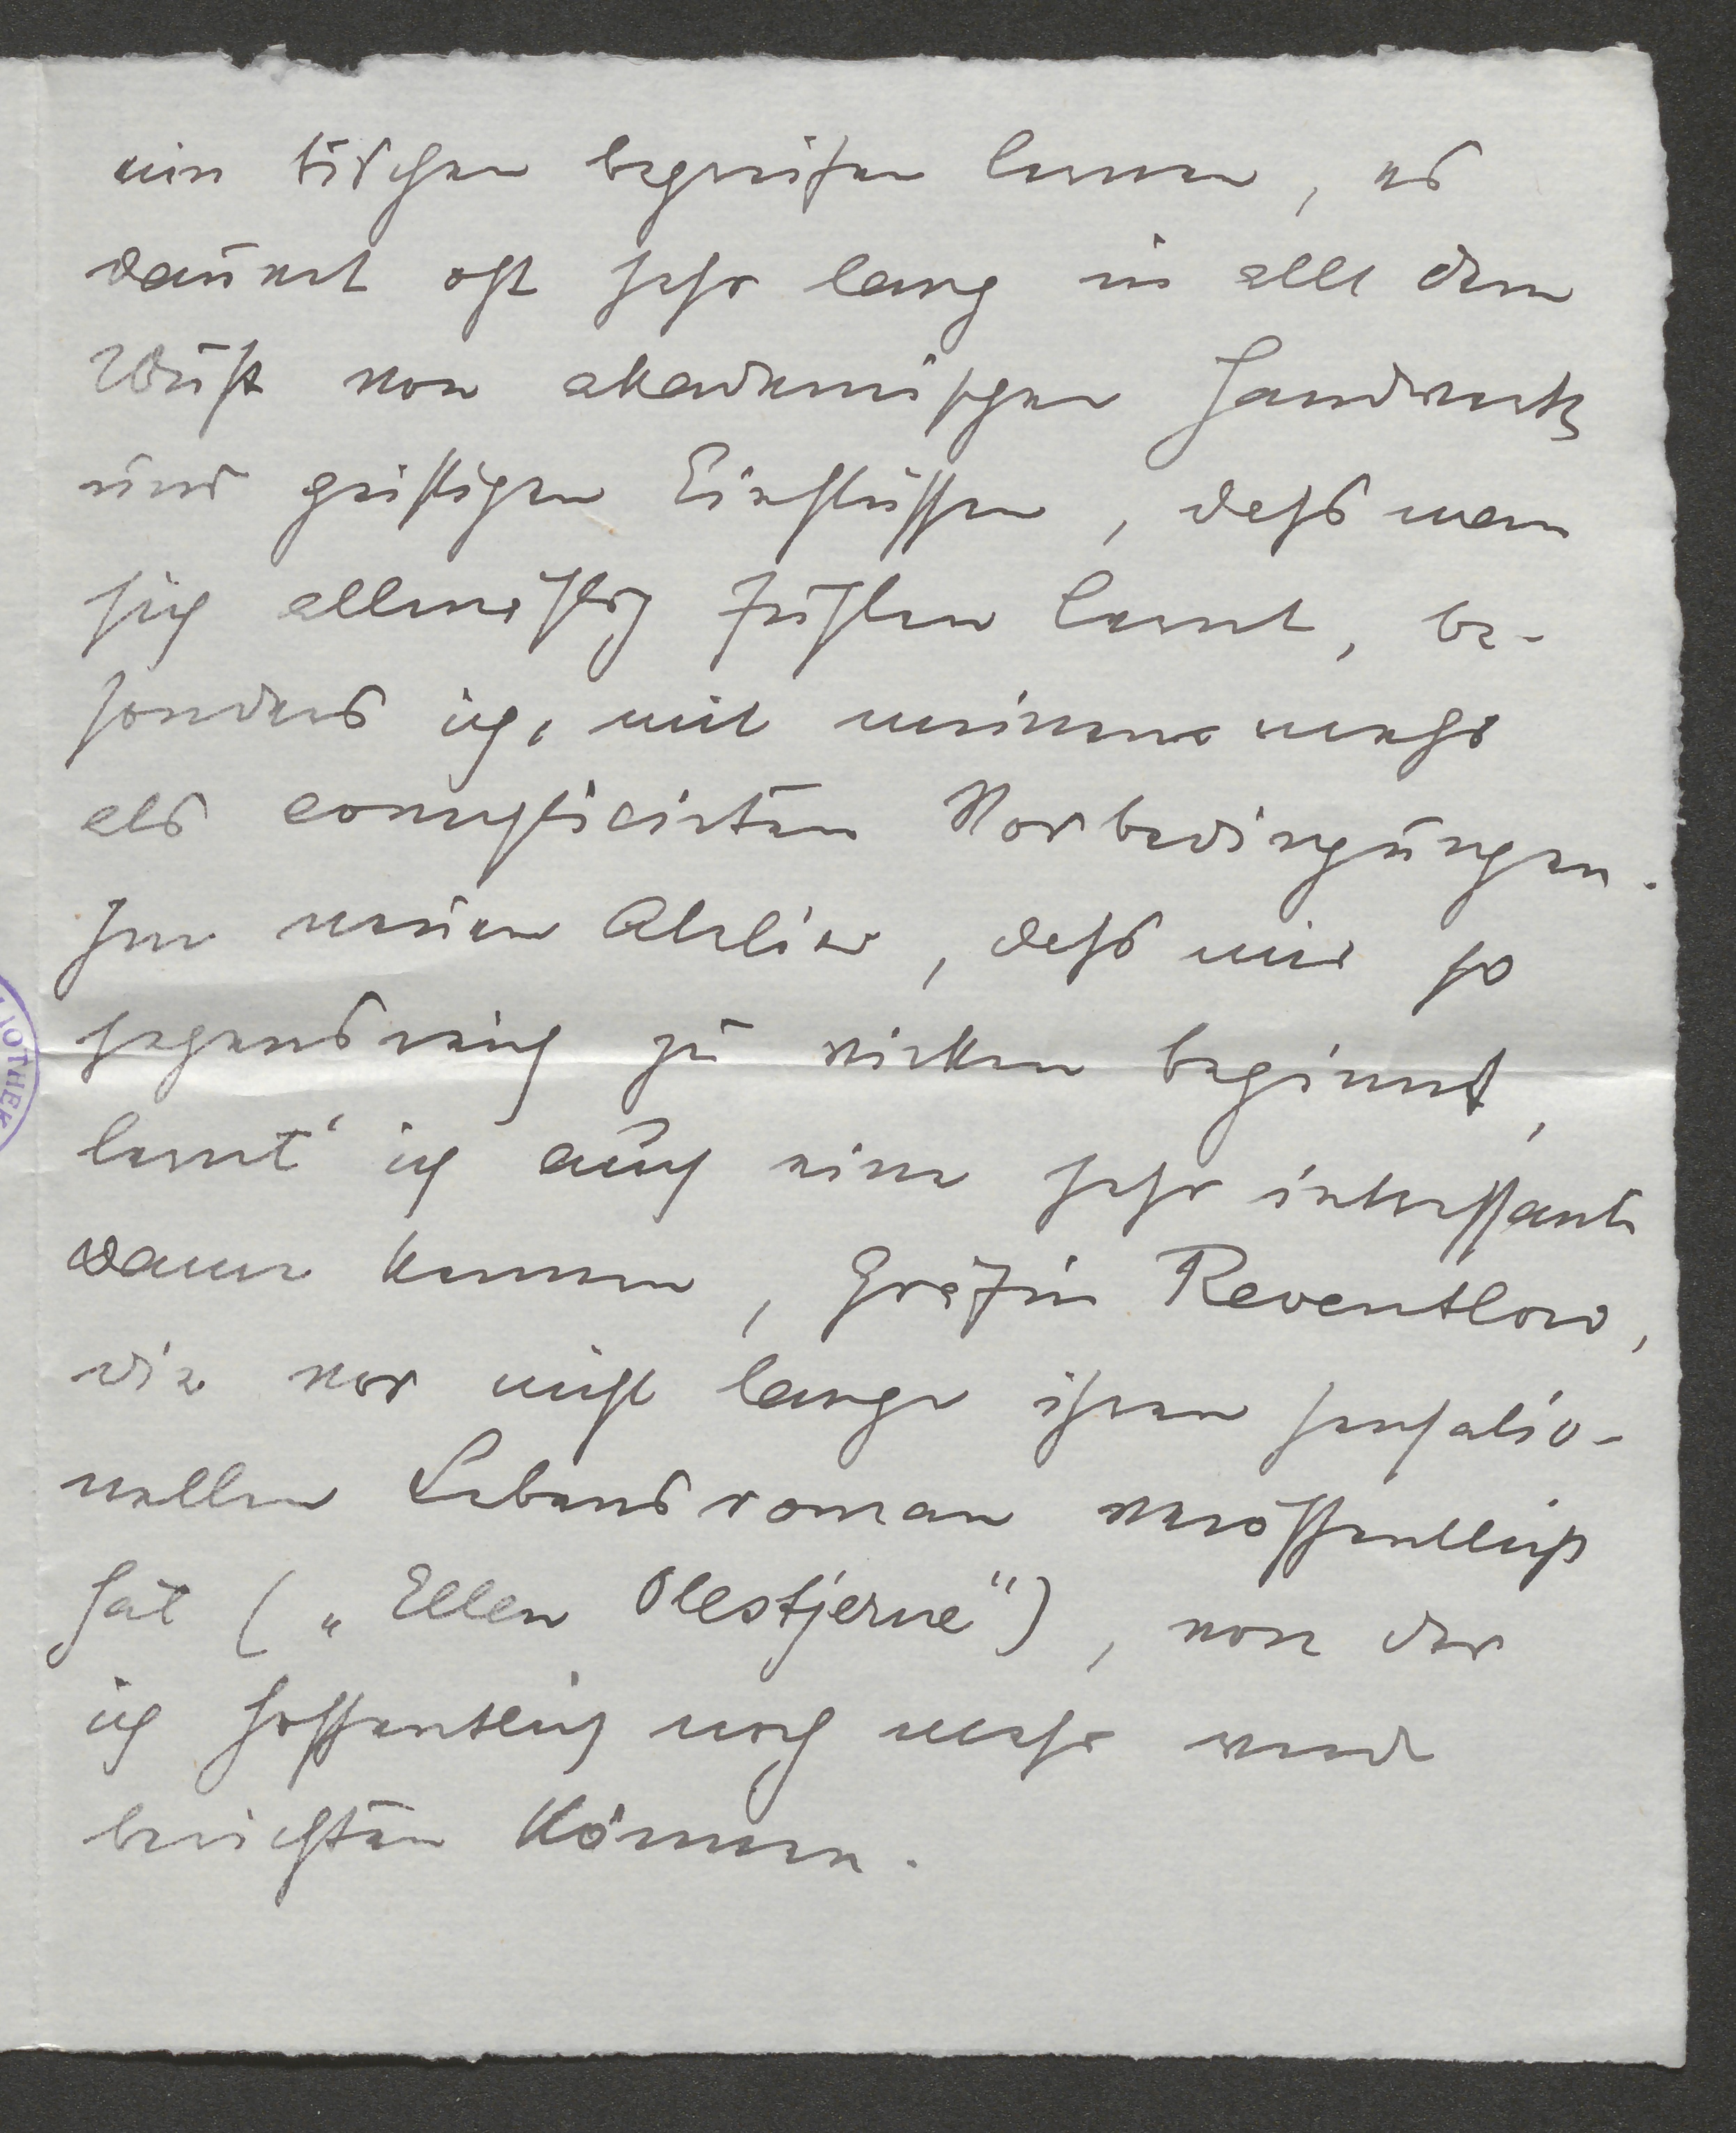 ein bischen begreifen lernen, es
dauert oft sehr lang in all dem
Wust von akademischen Handwerks
und geistigen Einflüssen, dass man
sich allmählig fühlen lernt, be-
sonders ich, mit meinen mehr
als complicirten Vorbedingungen.
Im neuen Atelier, dass mir so
segensreich zu wirken beginnt,
lernt' ich auch eine sehr interssante
Dame kennen, Gräfin Reventlow,
die vor nicht lange ihren sensatio-
nellen Lebensroman veröffentlicht
hat („Ellen Olestjerne"), von der
ich hoffentlich noch mehr werde
berichten können.
IOTHEK